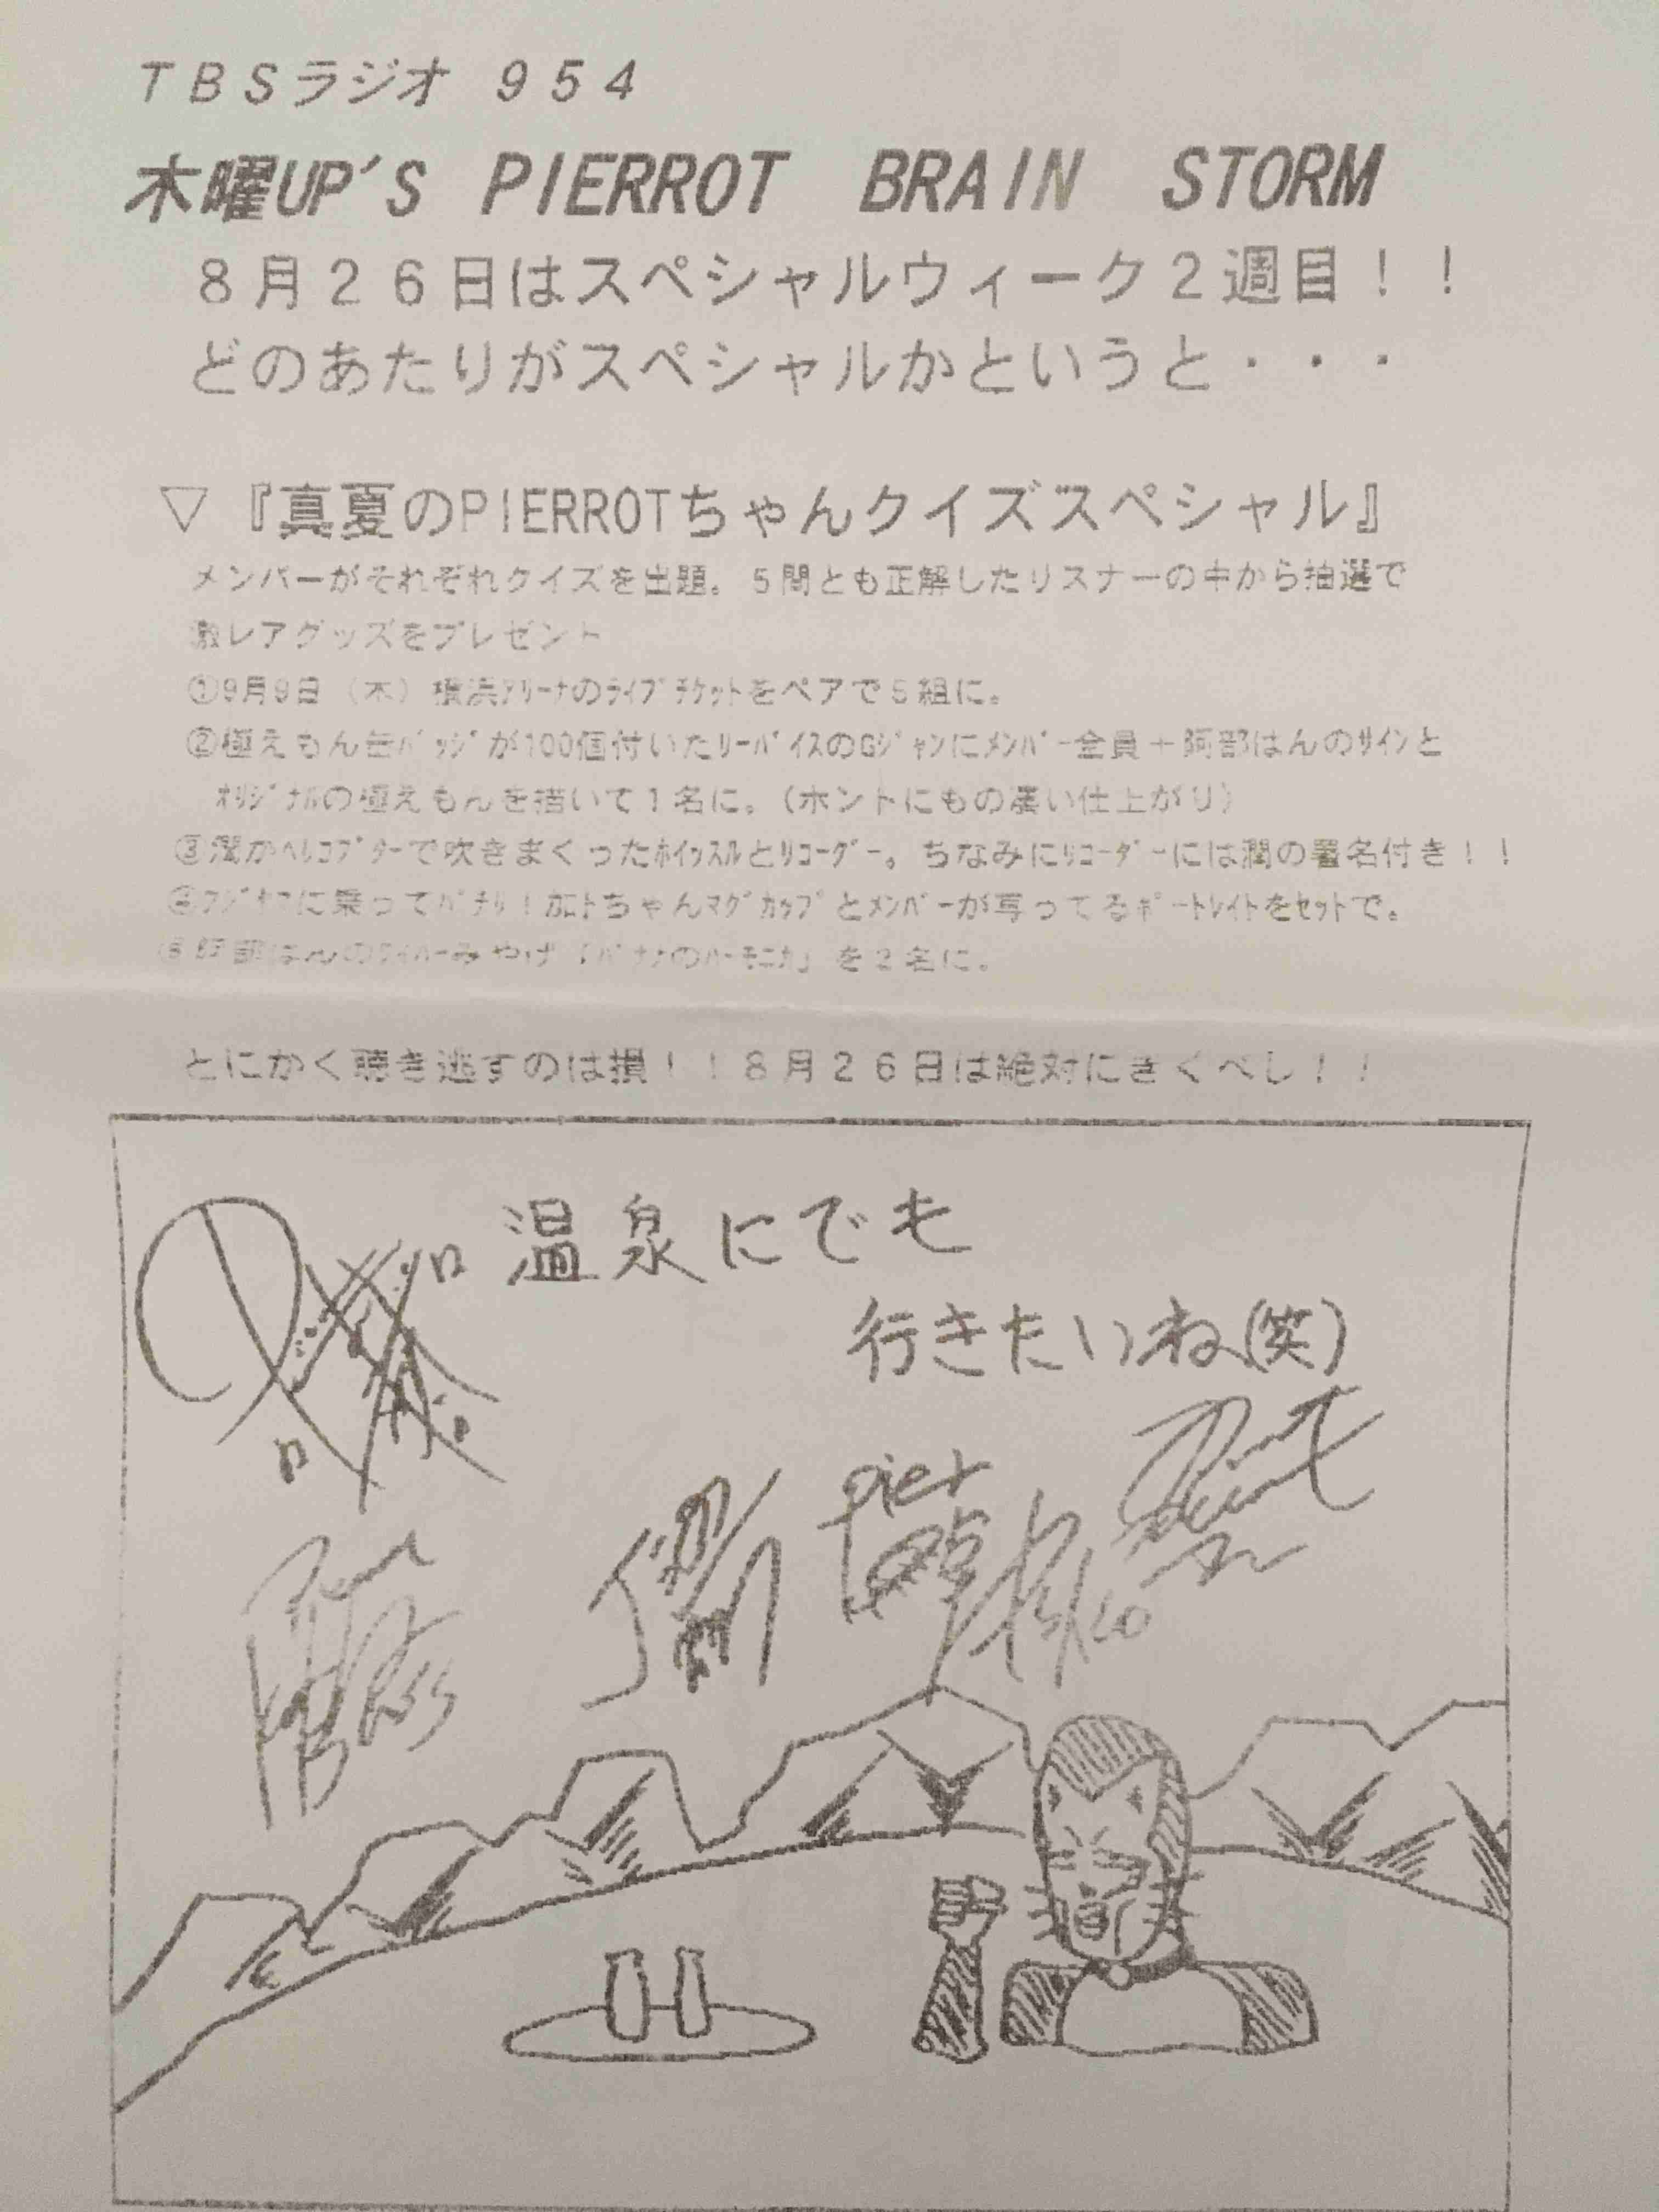 TBSラジオ 954
木曜UP'S PIERROT BRAIN STORM
8月26日はスペシャルウィーク2週目!!
どのあたりがスペシャルかというと・・・
▽『真夏のPIERROTちゃんクイズスペシャル』
メンバーがそれぞれクイズを出題。5問とも正解したリスナーの中から抽選で
激レアグッズをプレゼント
①9月9日(木)横浜アリーナのライブチケットをペアで5組に。
②極えもん缶バッジが100個付いたリーバイスのGジャンにメンバー全員+阿部はんのサインと
オリジナルの極えもんを描いて1名に。(ホントにもの凄い仕上がり)
③潤がヘリコプターで吹きまくったホイッスルとリコーダー。ちなみにリコーダーには潤の署名付き!!
④フジヤマに乗ってパチリ!加トちゃんマグカップとメンバーが写ってるポートレイトをセットで。
⑤阿部はんのハーみやげ「バナナのハーモニカ」を2名に。
とにかく聴き逃すのは損!!8月26日は絶対にきくべし!!
温泉にでも
行きたいね(笑)
pier